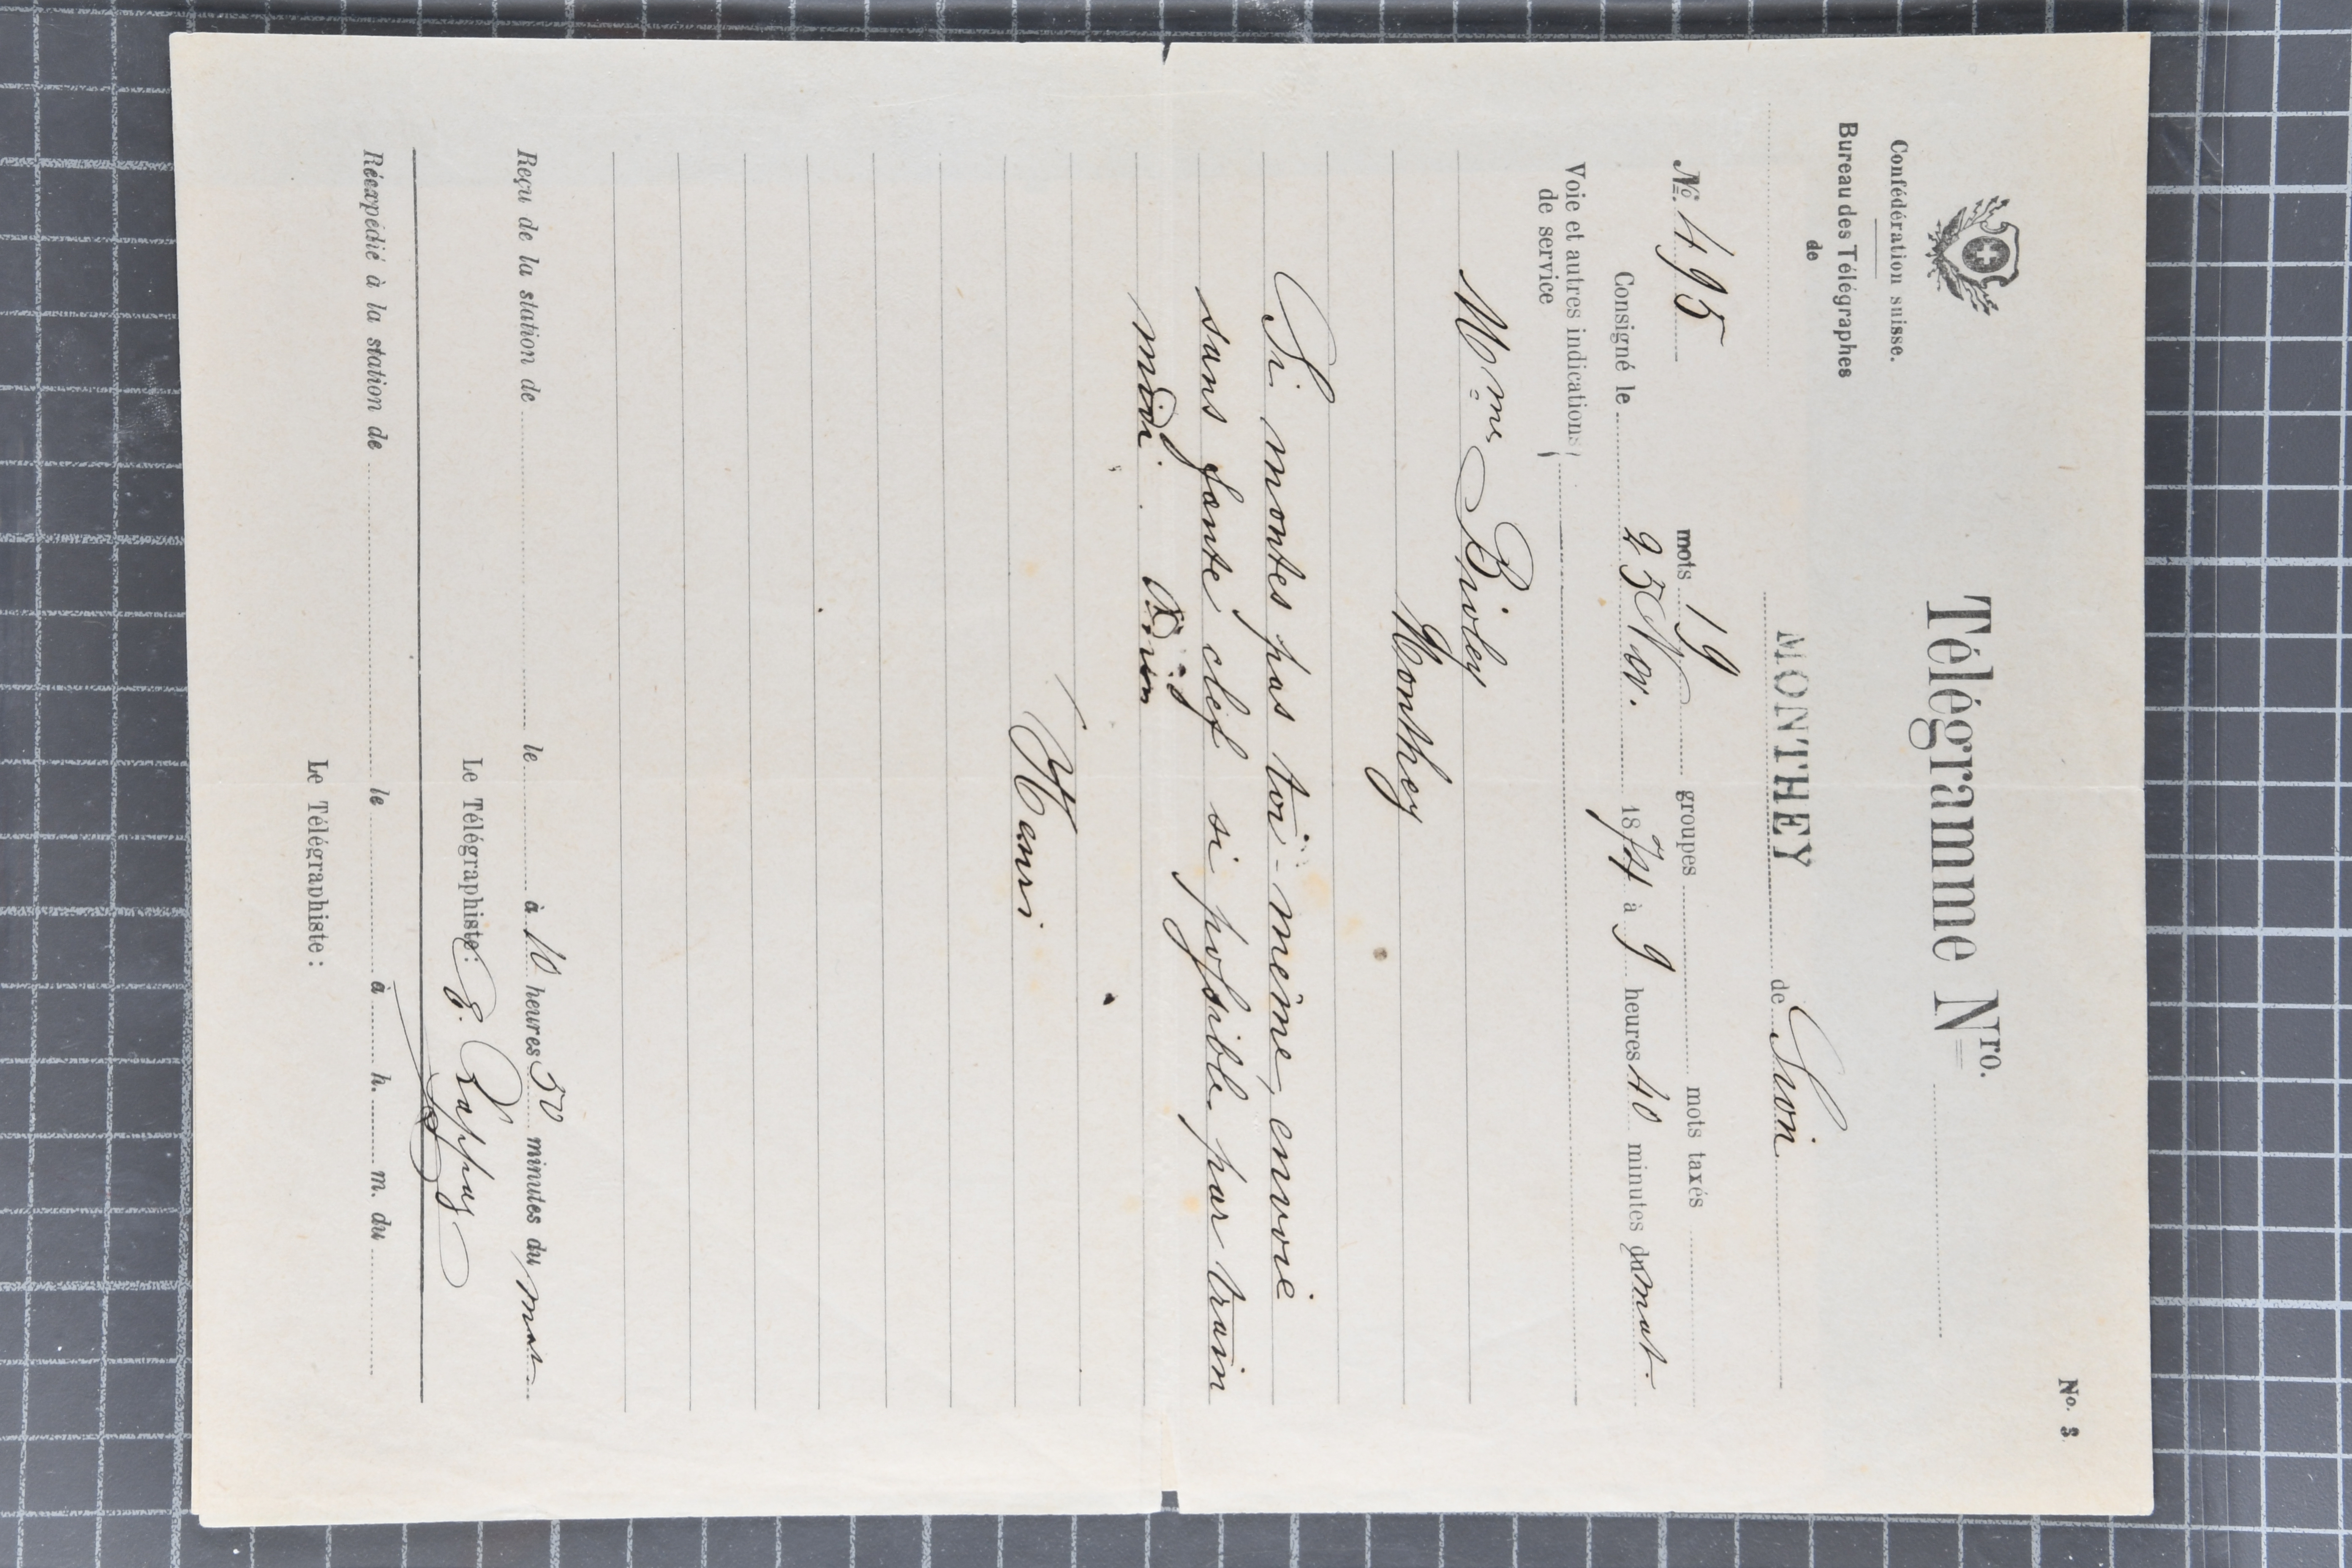 No. 3
Télégramme Nro.
Confédération suisse.
Bureau des Télégraphes
de
MONTHEY de Sion
No. 495 mots 19 groupes mots taxés
Consigné le 25 Nov. 1874 à 9 heures 40 minutes du mat.
Voie et autres indications
de service
Mme Bioley
Monthey
Si montes pas toi-même, envoie
sans faute clef si possible par train
midi.
Henri
Reçu de la station de le à 10 heures 50 minutes du mat
Le Télégraphiste: E. Rappaz
Réexpédié à la station de le à h. m. du
Le Télégraphiste: